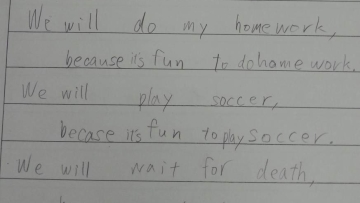 We will do my homework,
because it's fun to do home work.
We will play soccer,
becase it's fun to play soccer.
We will wait for death,